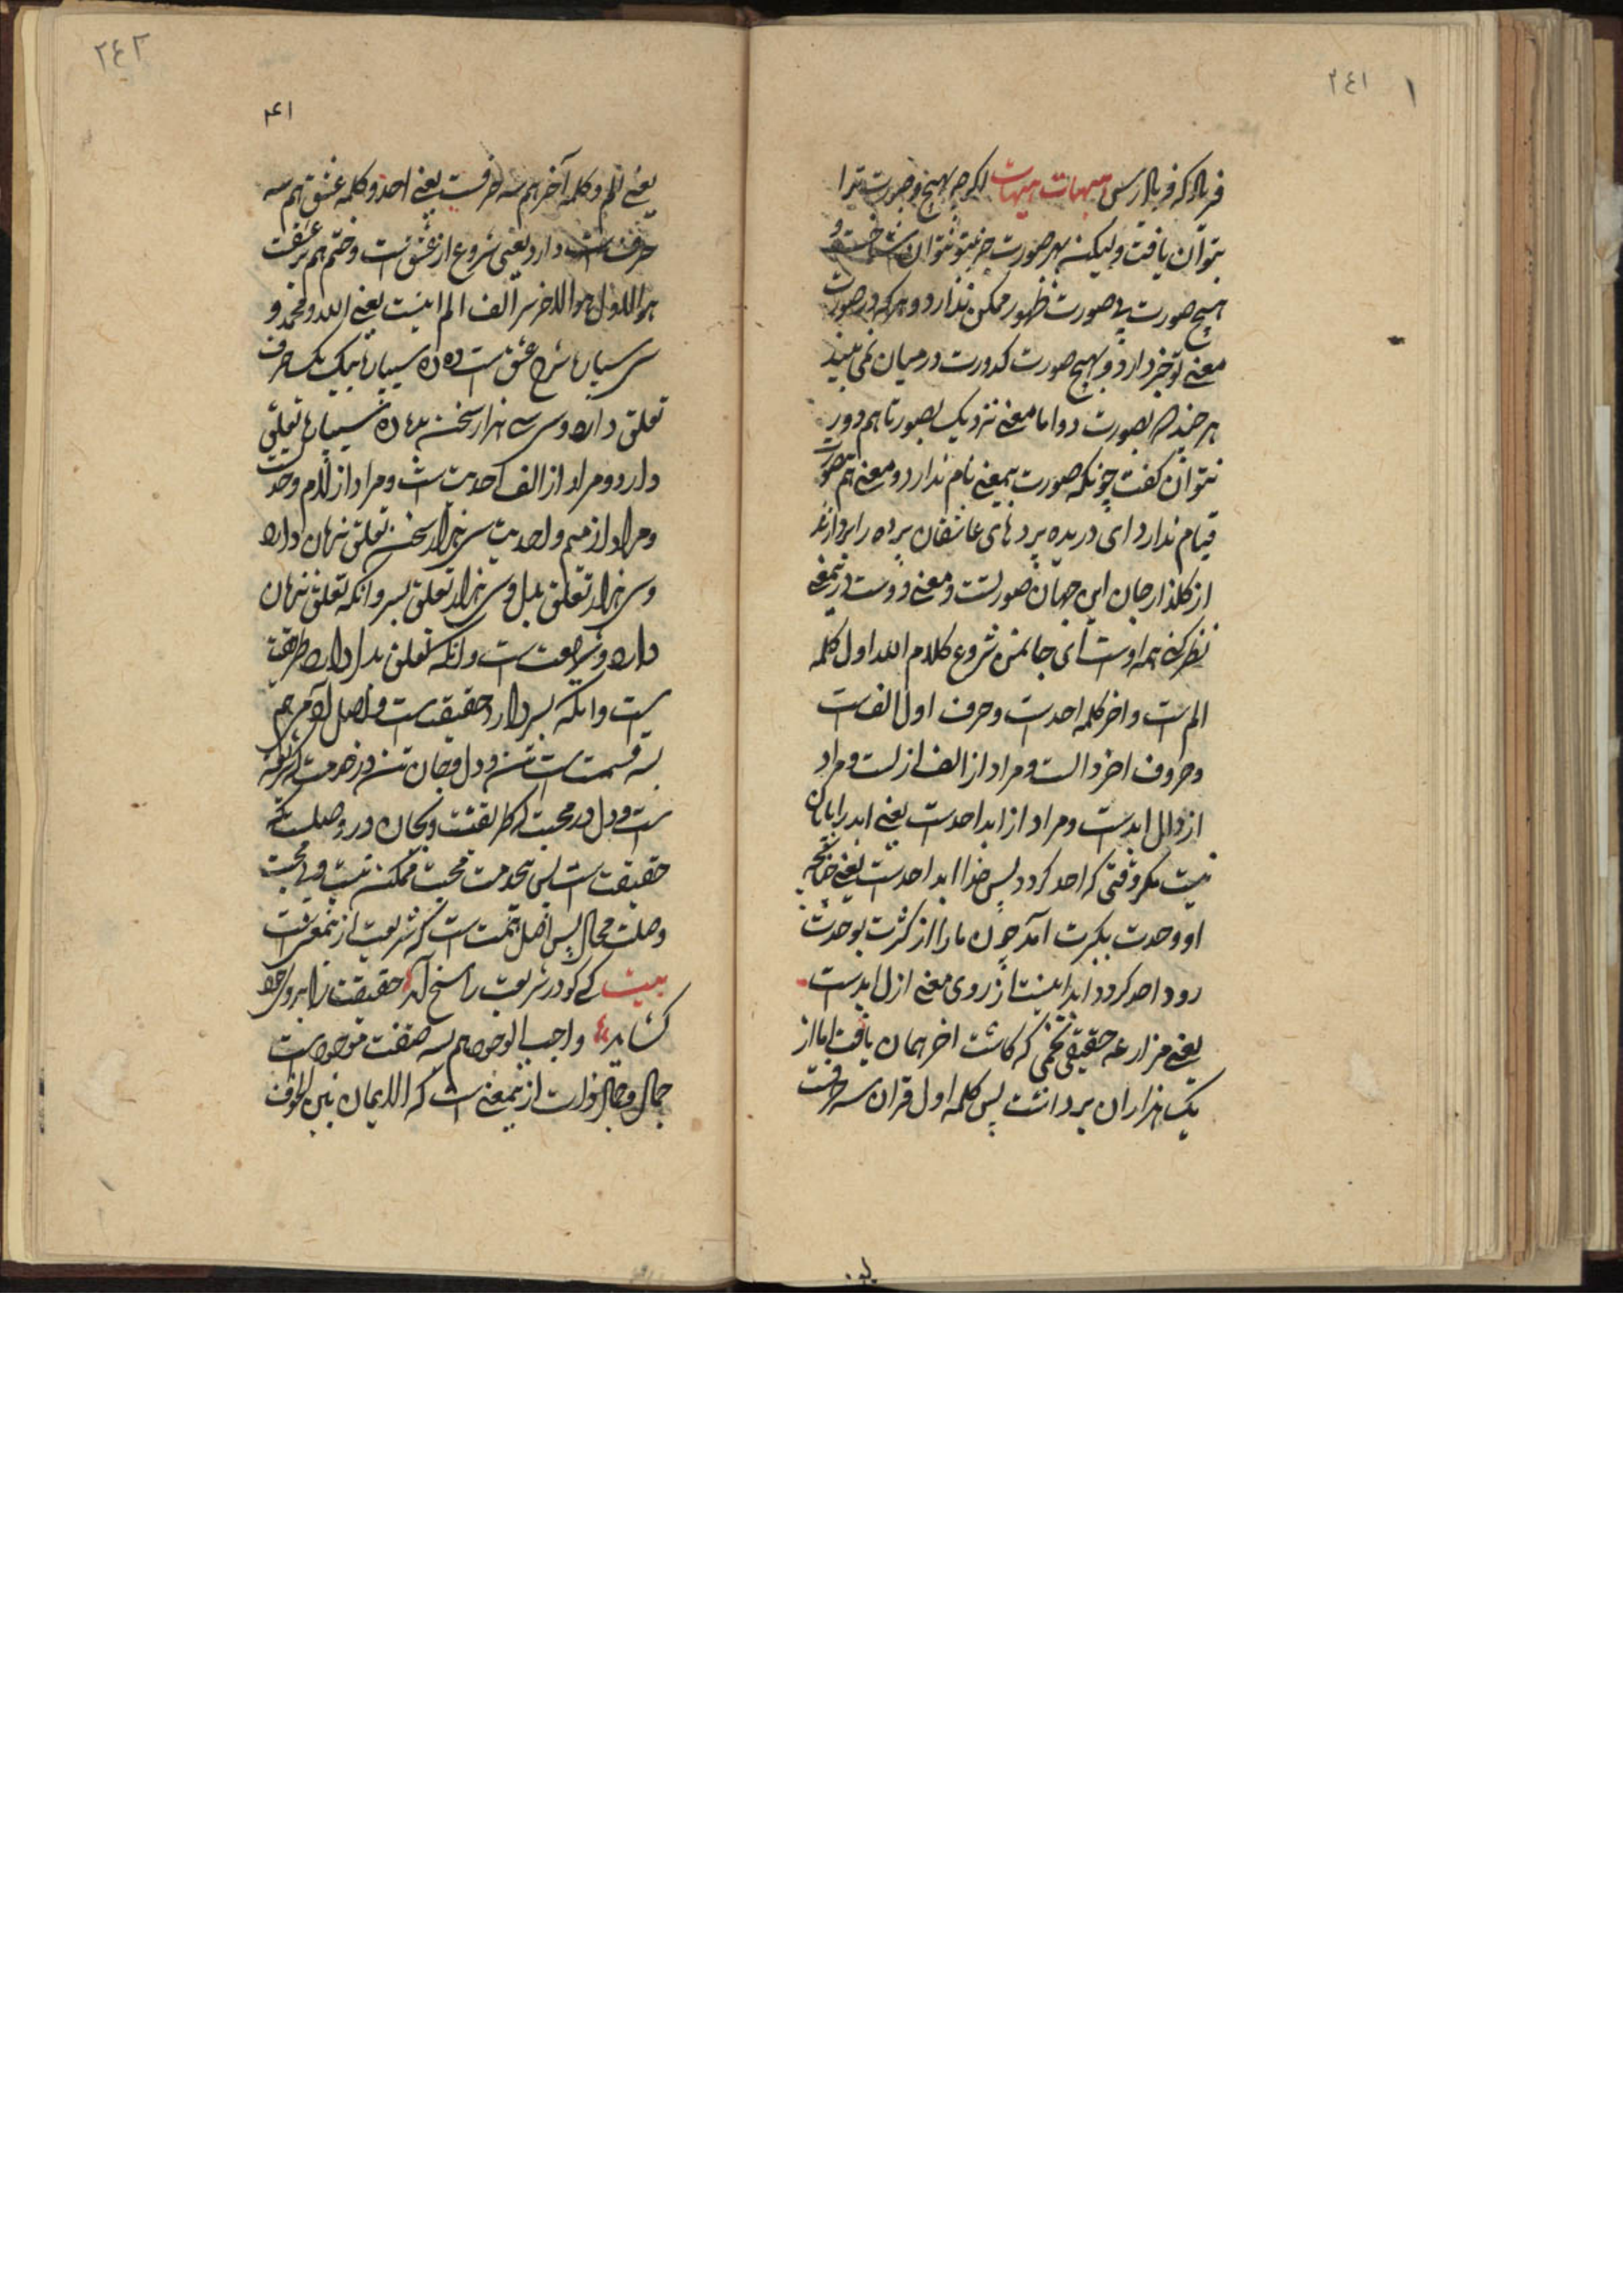 ٢٤١ ١
فریاد که فریاد رس هیهات هیهات اگرچه بهیچ وجه صورت ترا
نتوان یافت ولیکن بهر صورت جز بتو نتوان شناخت و
هیچ صورت بی صورت ظهور ممکن ندارد و هرکه در صورت
معنے تو خبر دارد و بهیچ صورت کدورت در میان نمی بیند
هرچند که بصورت دو اما معنے نزدیک بصورتا هم دور
نتوان گفت چونکه صورت بمعنے نام ندارد و معنے هم بصورت
قیام ندارد ای دریده پردهای عاشقان پرده را بردار
از گلذار جان این جهان صورتست و معنے دوست در معنے
نظر کنے همه اوست ای جانمن شروع کلام الله اول کلمه
الم است و اخر کلمه احدست و حرف اول الف است
و حروف اخر دالست و مراد از الف ازلست و مراد
از دال ابدست و مراد از ابد احدست یعنے ابد را پایان
نیست مگر وقتی که احد گردد پس خدا ابد احدست یعنے چنانچه
او وحدت بکثرت آمد چون ما را از کثرت بوحدت
رود احد گردد ابد اینست از روی معنے ازل ابدست
یعنے مزارعه حقیقی تخمی که کاشت اخر همان یافت اما از
یک هزاران برداشت پس کلمه اول قران سه حرفست
٢٤٢
۴۱
یعنے الم و کلمه آخر هم سه حرفست یعنے احد و کلمه عشق هم سه
حرف دارد یعنی شروع از عشق است و ختم هم بر عشقست
هو الاول هو الاخر سر الف الم اینست یعنے الله و محمد و
سی سیپاره شرح عشق است ده ده سیپاره بیک یک حرف
تعلق دارد و سی سے هزار سخن بده ده سیپاره تعلق
دارد و مراد از الف احدیت است و مراد از لام وحدت
و مراد از میم واحدیت سی هزار سخن تعلق بزبان دارد
و سی هزار تعلق بدل و سی هزار تعلق بسر و آنکه تعلق بزبان
دارد شریعت است و آنکه تعلق بدل دارد طریقت
است و آنکه بسر دارد حقیقت است و اصل آدم هم
سه قسمت است تن و دل و جان تن در خدمت که شریعت
است و دل در محبت که طریقتست و جان در وصلت که
حقیقت است پس بیخدمت محبت ممکن نیست و بی محبت
وصلت محال پس اصل خدمت است که شریعت ازینمعنی است
بیت کسے کو در شریعت راسخ آید حقیقت را برو
گشاید و واجب الوجود هم بسه صفت موجود است
جمال و جلال و ذات ازینمعنے است که الایمان بین الخوف